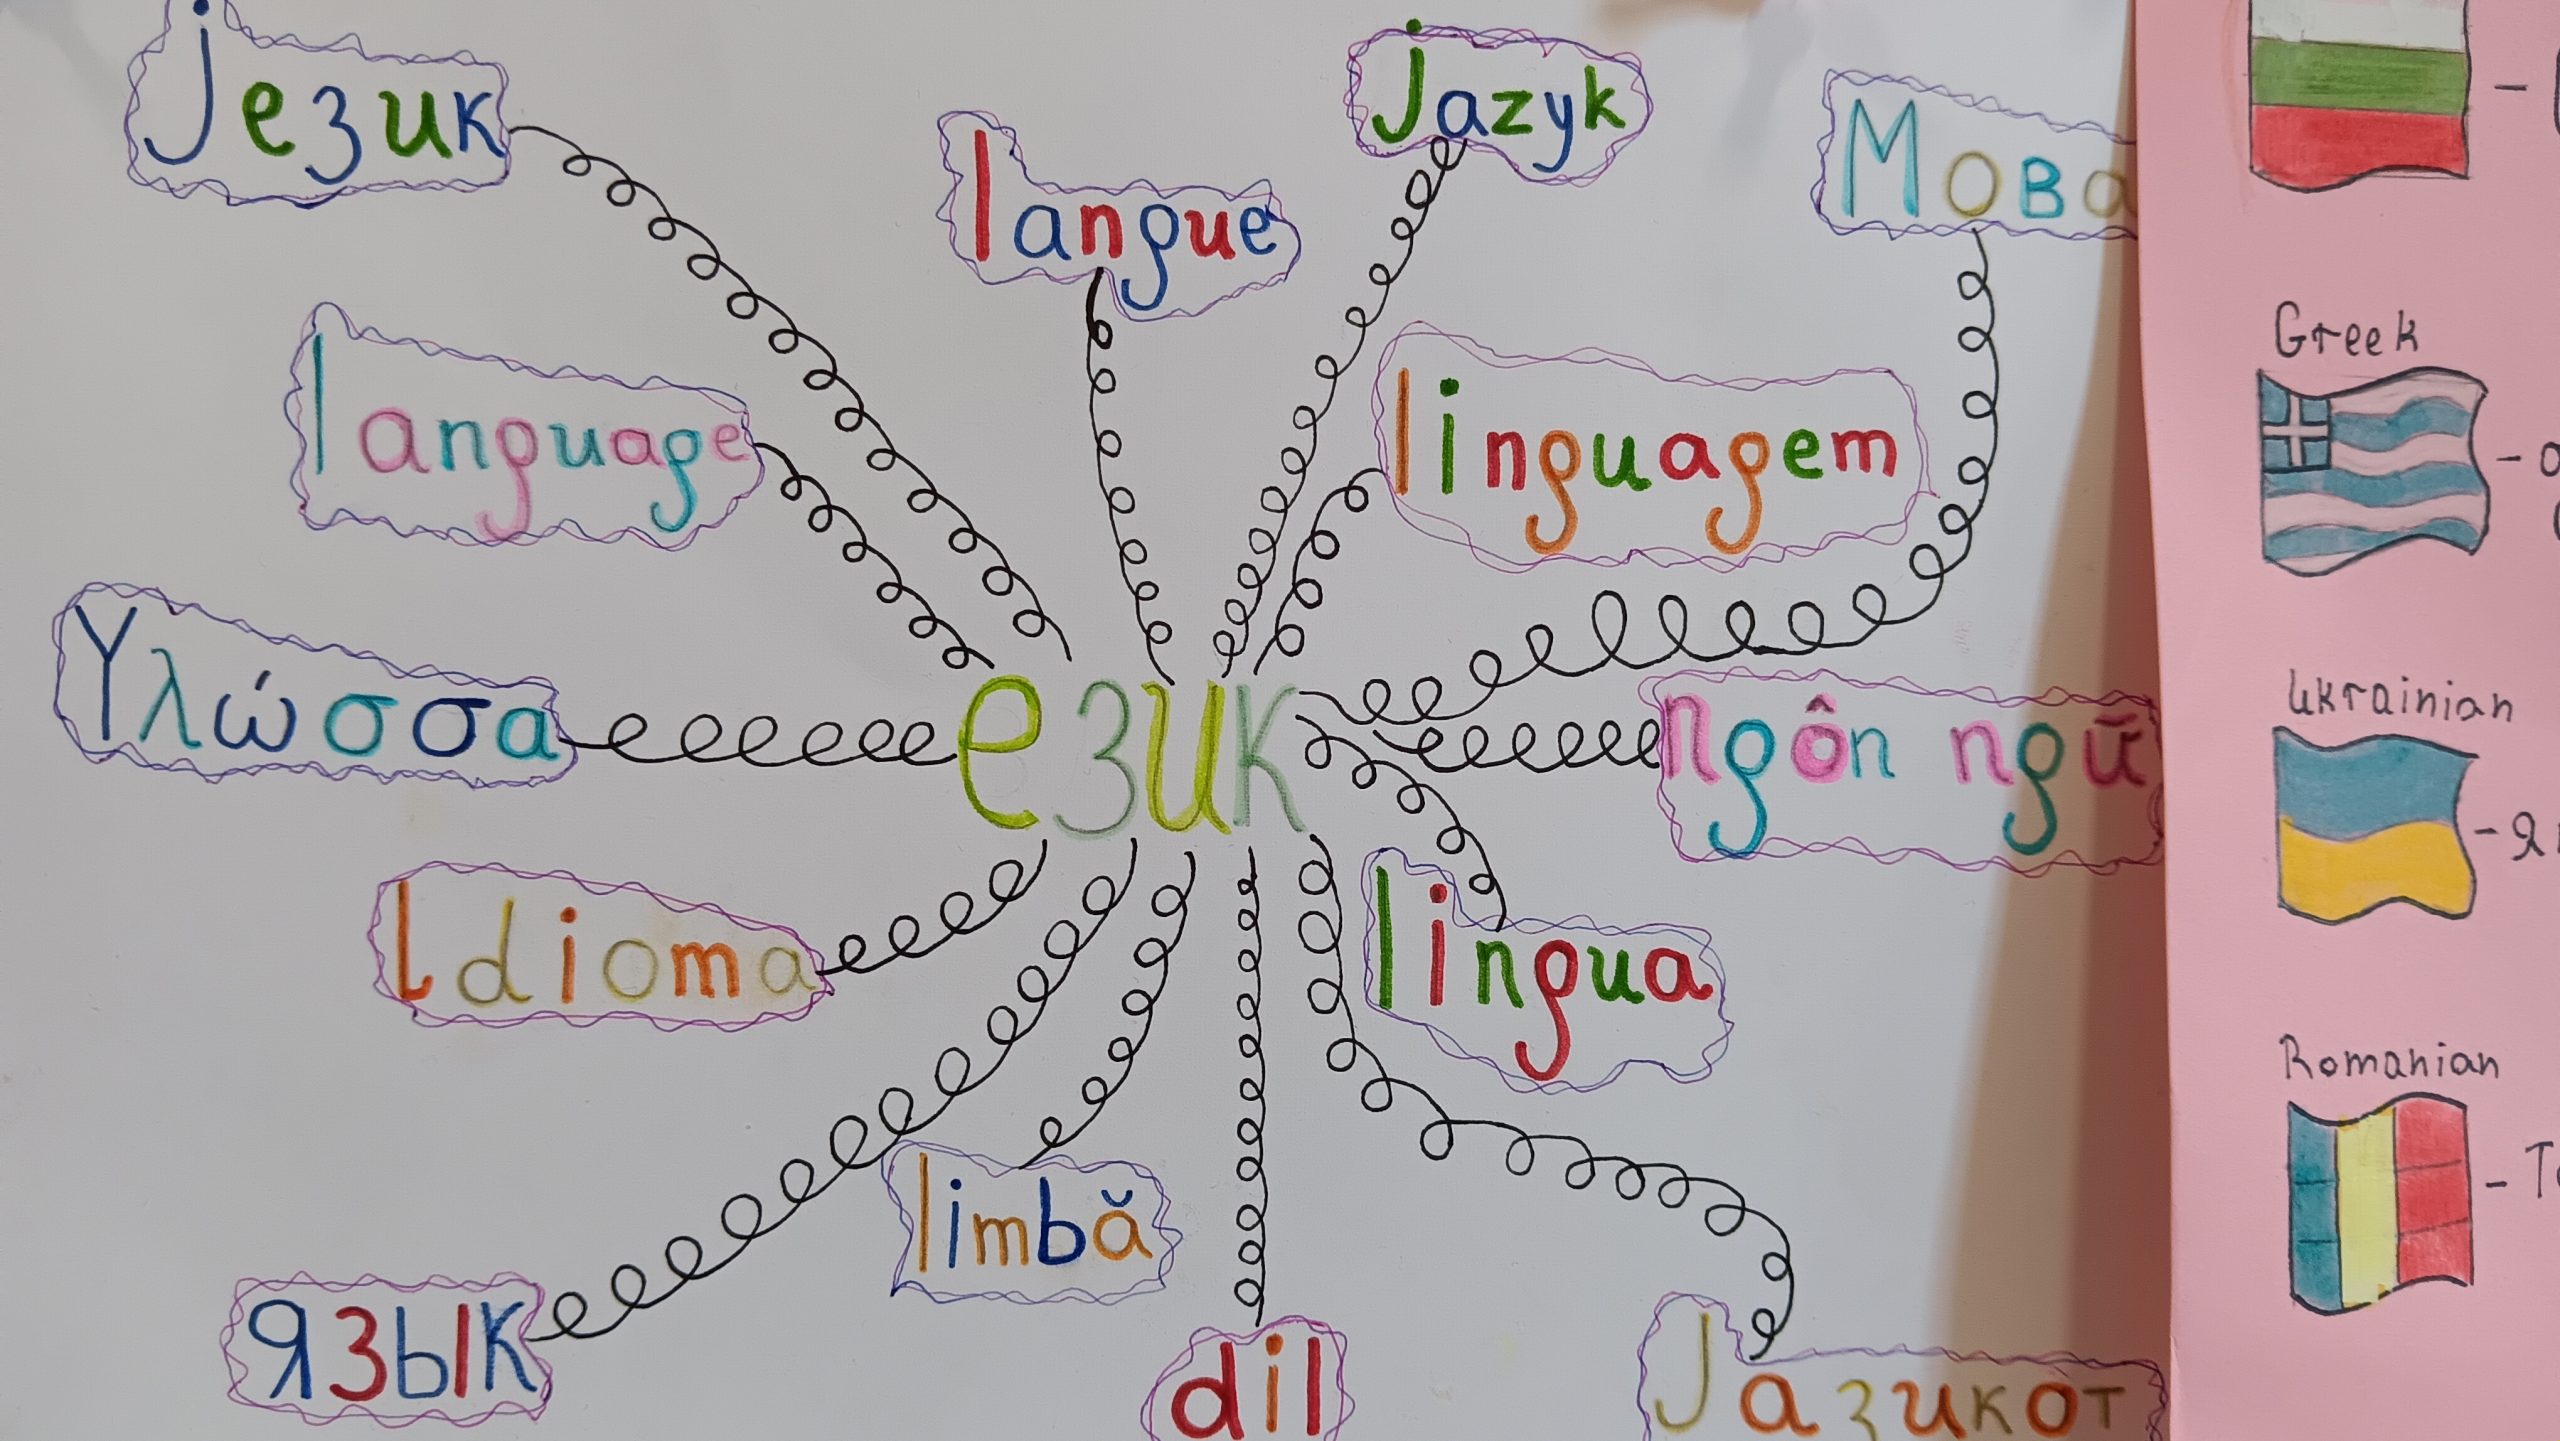 језик
langue
jazyk
Мова
language
linguagem
Υλώσσα
език
ngôn ngữ
Idioma
lingua
limbă
язык
dil
Јазикот
Greek
Ukrainian
Romanian